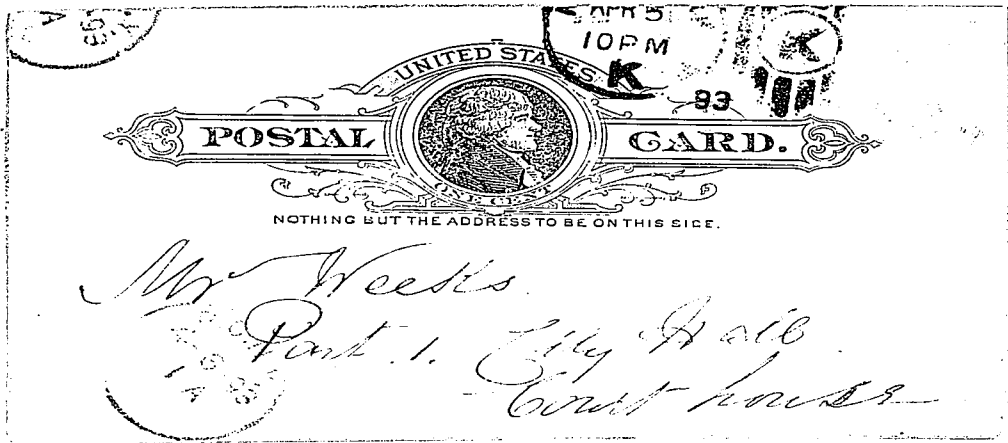 APR 5
10 PM
K
93
UNITED STATES
POSTAL CARD.
ONE CENT
NOTHING BUT THE ADDRESS TO BE ON THIS SIDE.
Mr Weeks
Part 1. City Hall
Court house